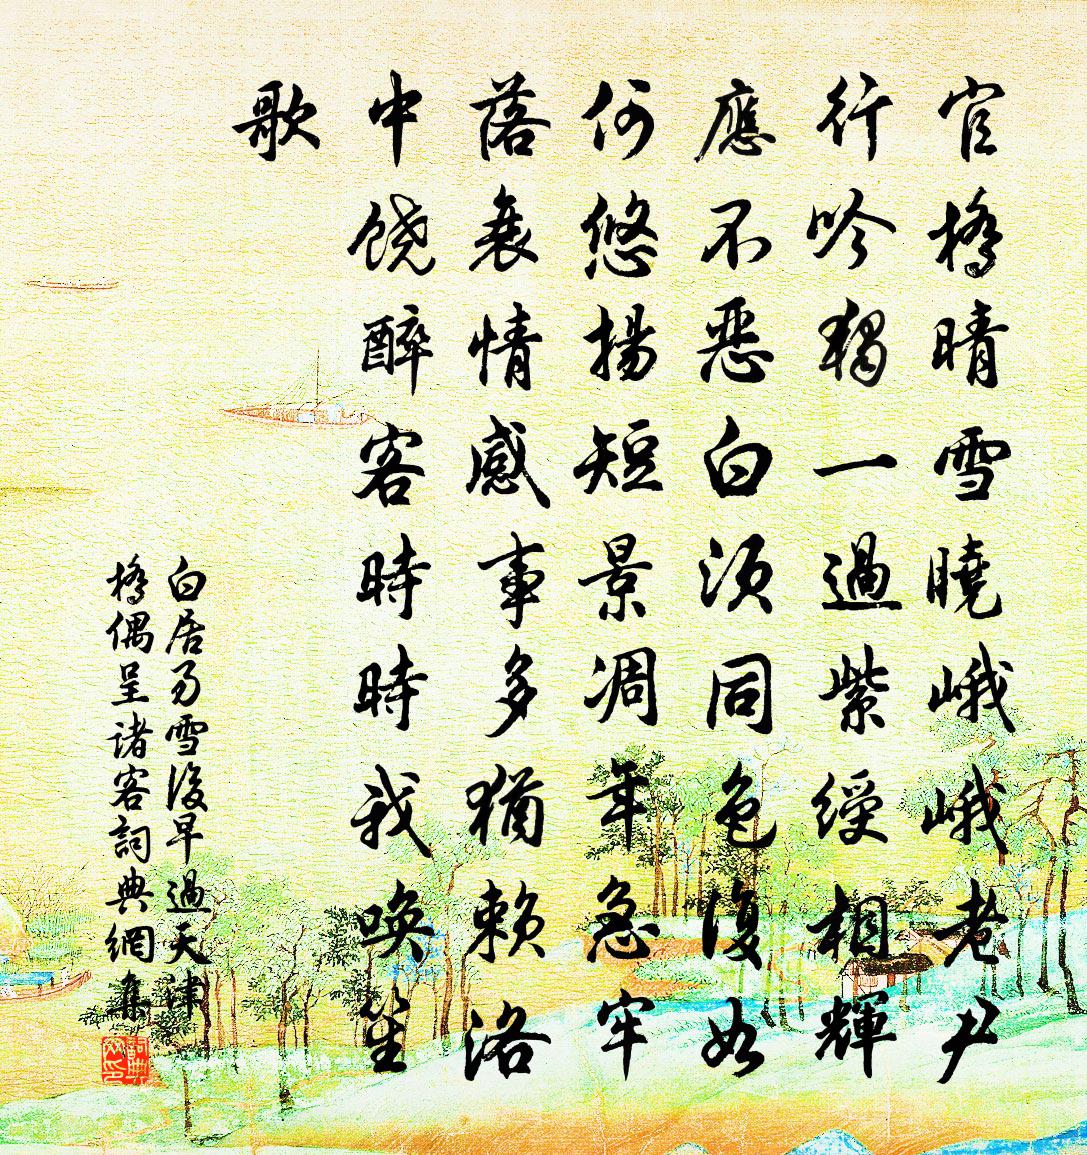 官橋晴雪曉峨峨老尹
行吟獨一過紫綬相輝
應不恶白须同色復如
何悠揚短景凋年急牢
落衰情感事多猶賴洛
中饶醉客時時我喚笙
歌
白居易雪後早過天津
橋偶呈诸客詞典網集